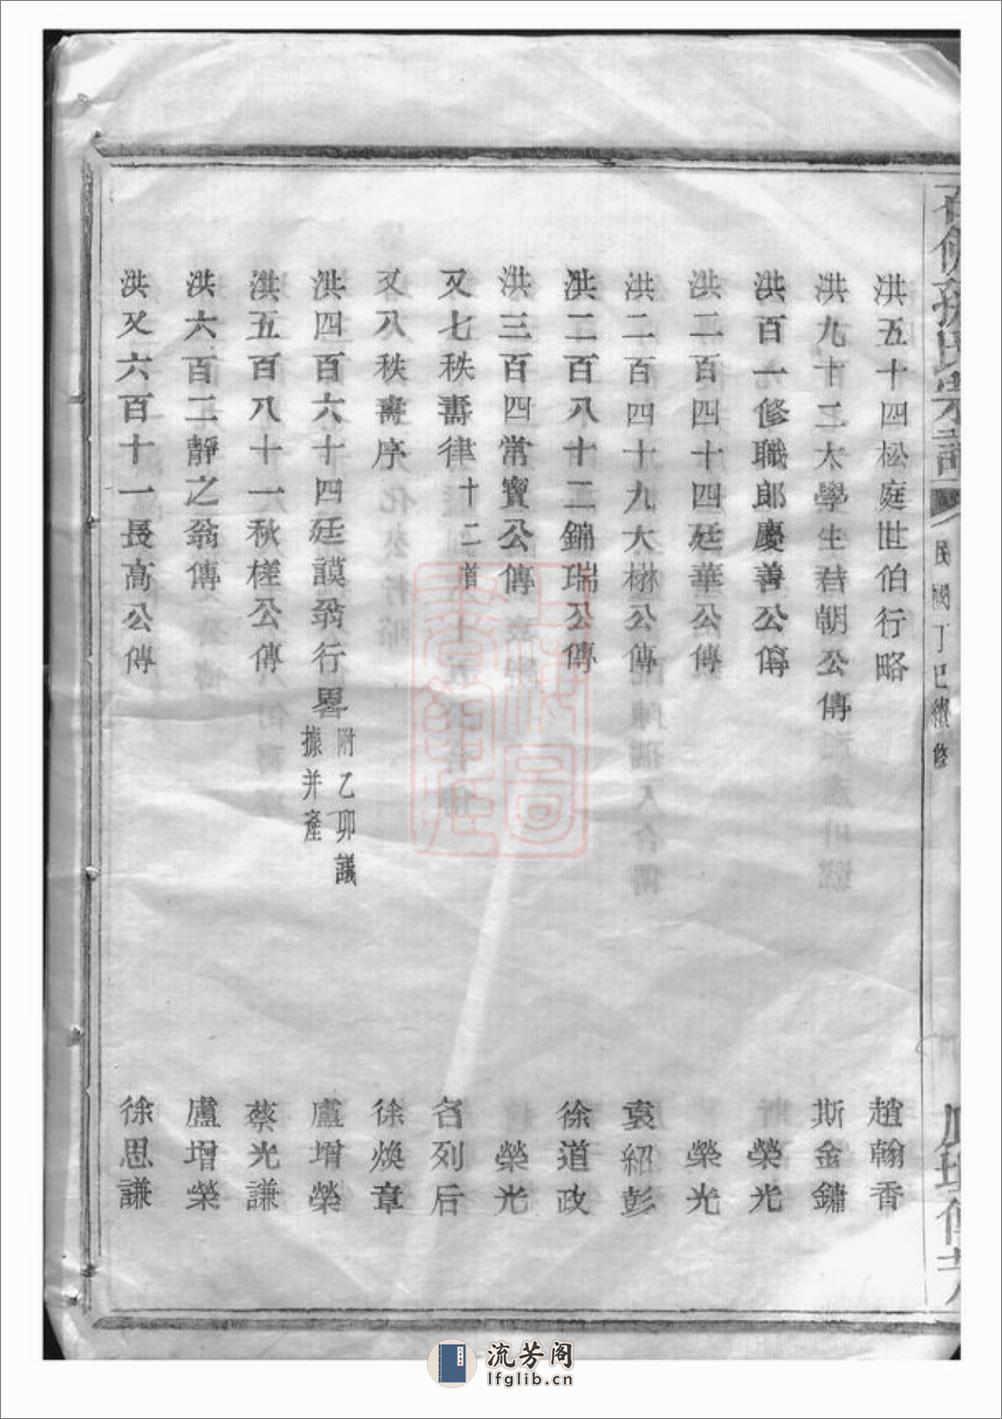 民國丁巳續修
洪五十四松庭世伯行略 趙翰香
洪九十二太學生君朝公傳 斯金鏞
洪百一修職郎慶善公傳 榮光
洪二百四十四廷華公傳 榮光
洪二百四十九大楙公傳 袁紹彭
洪二百八十二鏋瑞公傳 徐道政
洪三百四常寶公傳 榮光
又七秩壽律十二道 名列后
又八秩壽序 徐煥章
洪四百六十四廷謨翁行畧附乙卯議據并產 盧增榮
洪五百八十一秋槎公傳 蔡光謙
洪六百二靜之翁傳 盧增榮
洪又六百十一長高公傳 徐思謙
流芳阁
lfglib.cn